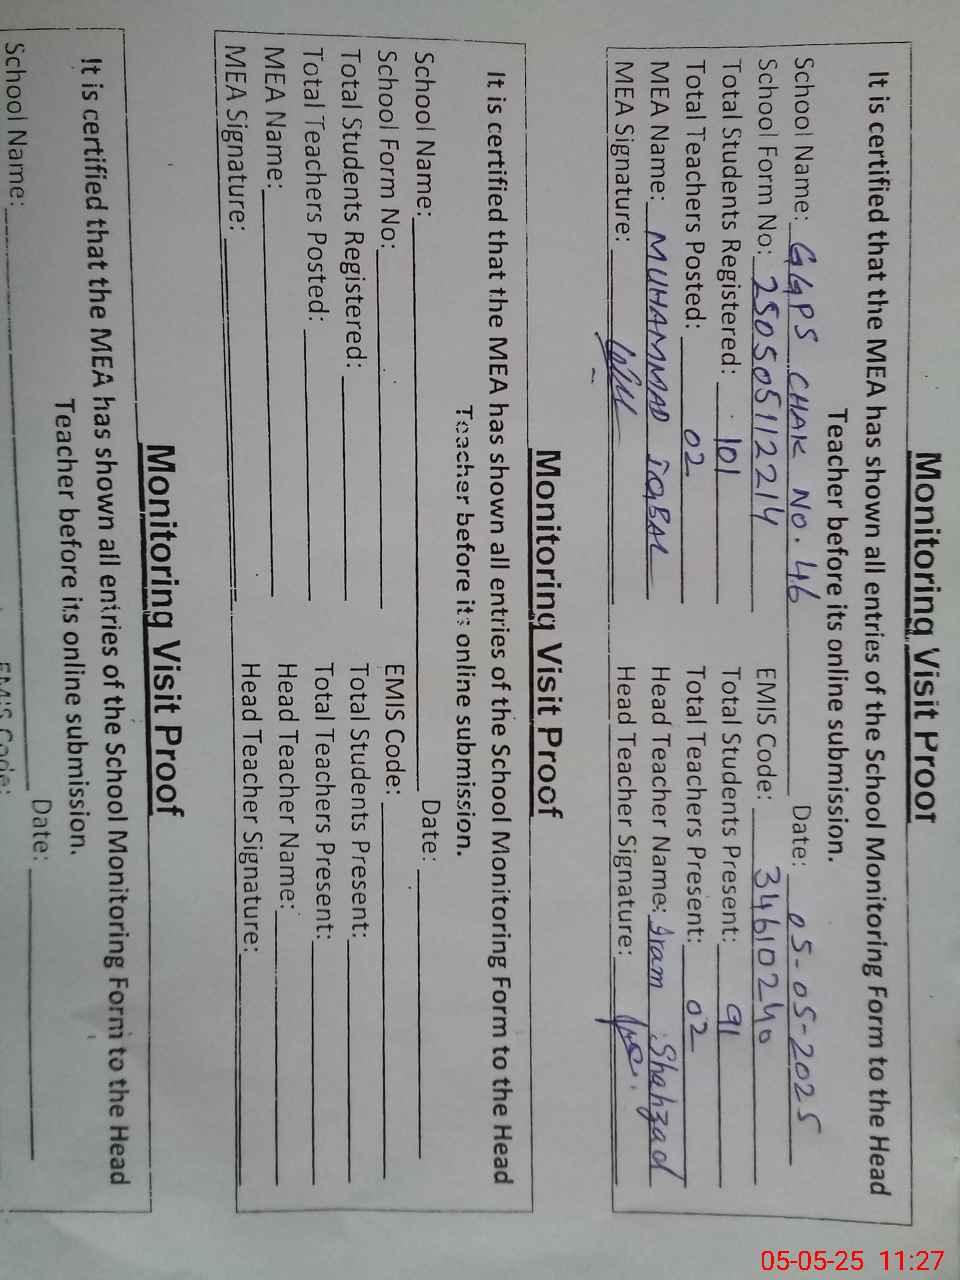 Monitoring Visit Proof
It is certified that the MEA has shown all entries of the School Monitoring Form to the Head
Teacher before its online submission.
School Name: GGPS CHAK NO. 46 Date: 05-05-2025
School Form No: 250505112214 EMIS Code: 34610240
Total Students Registered: 101 Total Students Present: 91
Total Teachers Posted: 02 Total Teachers Present: 02
MEA Name: MUHAMMAD IQBAL Head Teacher Name: Iram Shahzad
MEA Signature: Head Teacher Signature:
Monitoring Visit Proof
It is certified that the MEA has shown all entries of the School Monitoring Form to the Head
Teacher before its online submission.
School Name: Date:
School Form No: EMIS Code:
Total Students Registered: Total Students Present:
Total Teachers Posted: Total Teachers Present:
MEA Name: Head Teacher Name:
MEA Signature: Head Teacher Signature:
Monitoring Visit Proof
It is certified that the MEA has shown all entries of the School Monitoring Form to the Head
Teacher before its online submission.
School Name: Date:
EMIS Code:
05-05-25 11:27